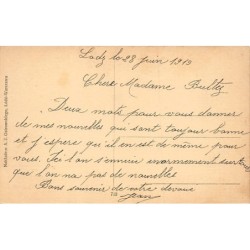 Lodz le 28 juin 1913
Chere Madame Bultez
Deux mots pour vous donner
de mes nouvelles qui sont toujour bonne
et j'espere qu'il en est de même pour
vous. Ici l'on s'ennuie enormement surtout
que l'on n'a pas de nouvelles
Bons souvenir de votre devoué
Jean